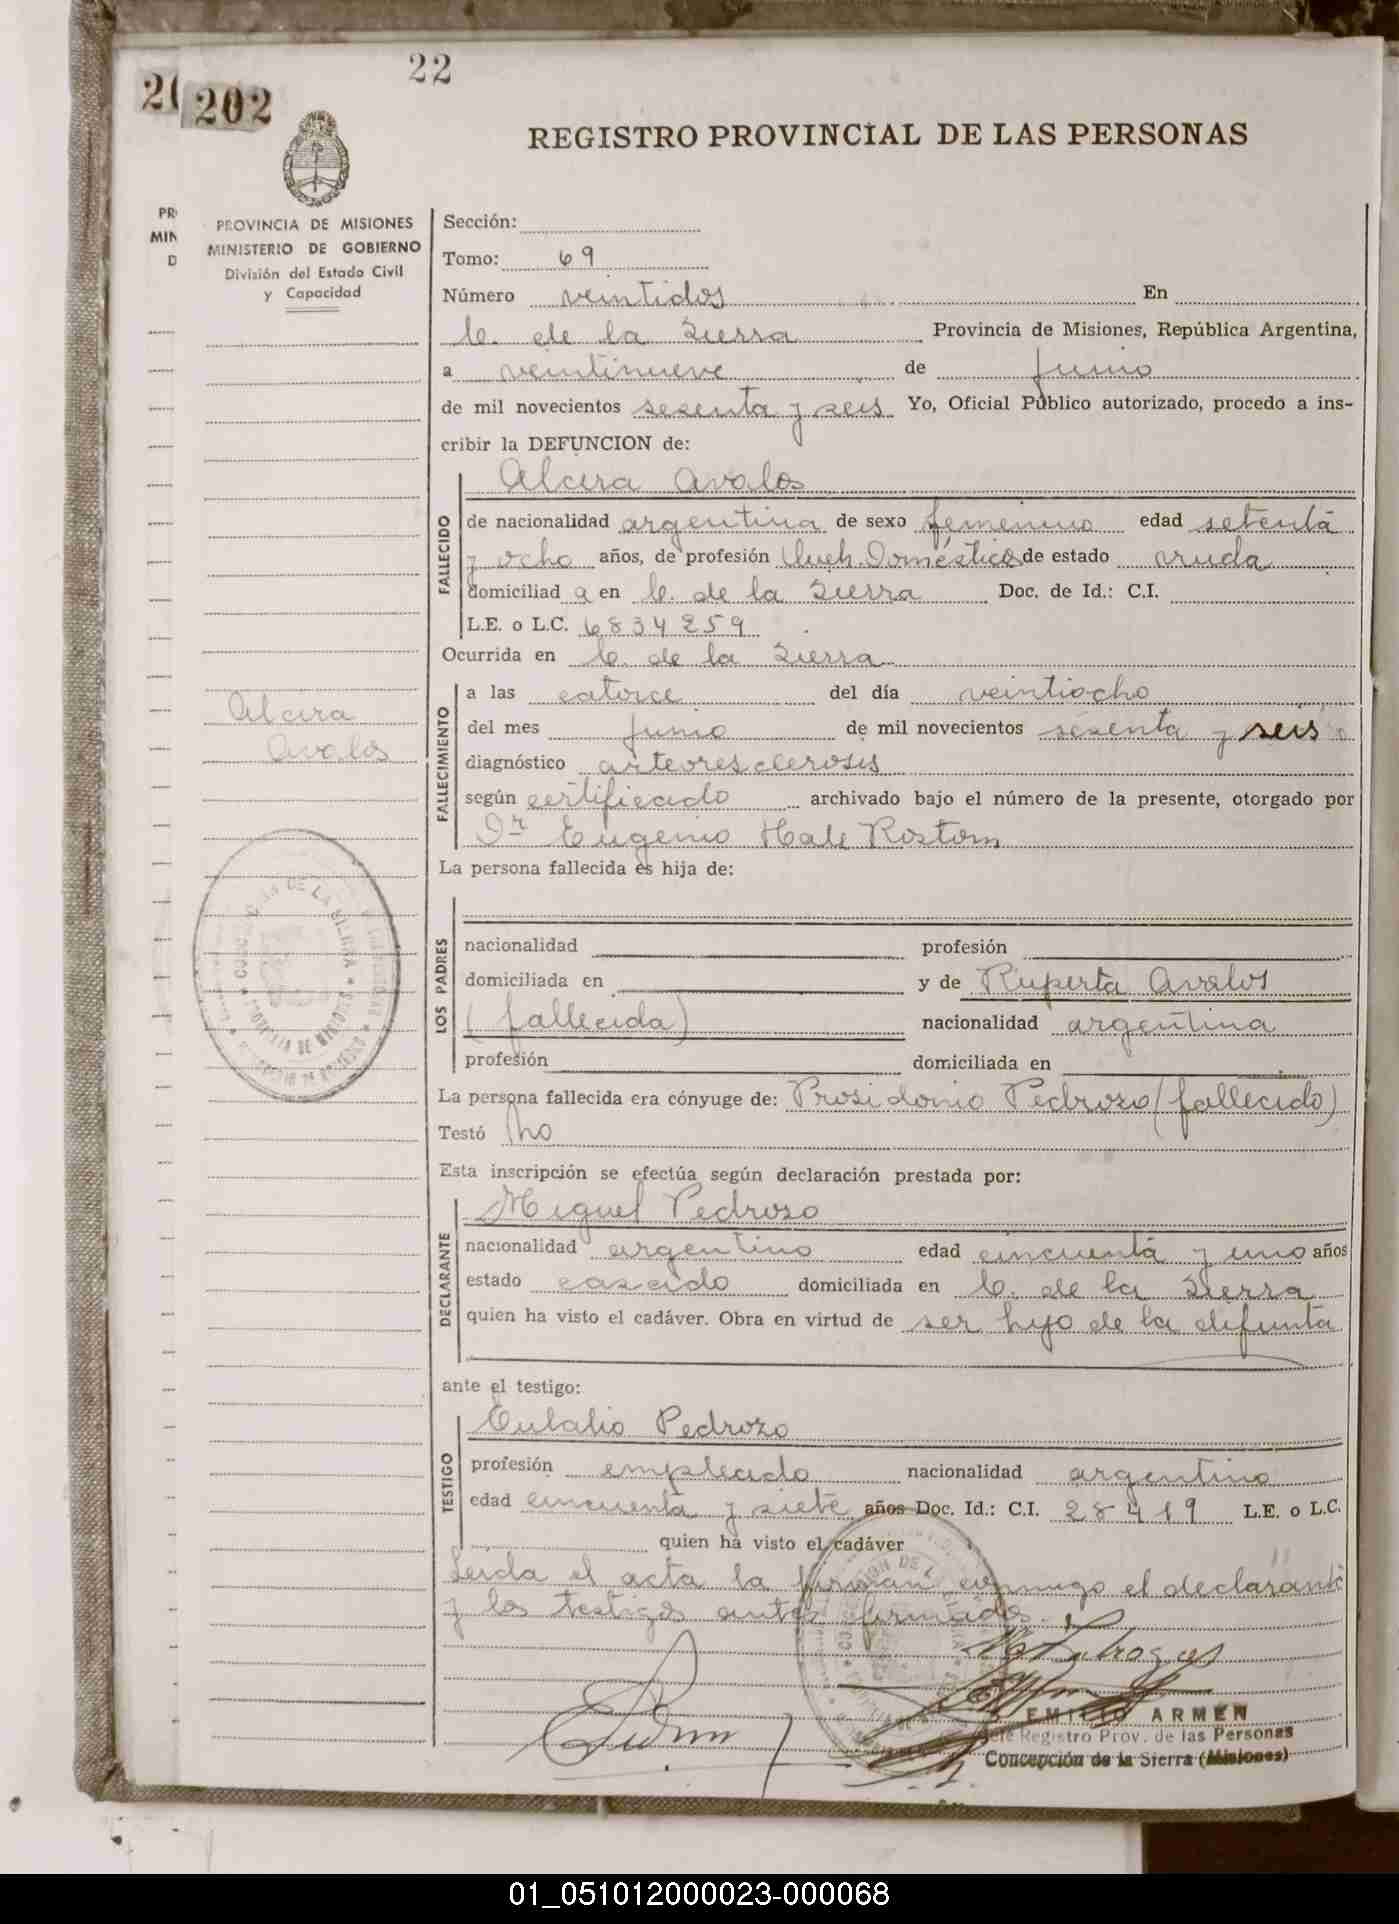 22
202
REGISTRO PROVINCIAL DE LAS PERSONAS
PROVINCIA DE MISIONES
MINISTERIO DE GOBIERNO
División del Estado Civil
y Capacidad
Sección:
Tomo: 69
Número veintidos En
C. de la Sierra Provincia de Misiones, República Argentina,
a veintinueve de junio
de mil novecientos sesenta y seis Yo, Oficial Público autorizado, procedo a ins-
cribir la DEFUNCION de:
FALLECIDO
Alcira Avalos
de nacionalidad argentina de sexo femenino edad setenta
y ocho años, de profesión Queh. Domésticos de estado viuda
domiciliad a en C. de la Sierra Doc. de Id.: C.I.
L.E. o L.C. 6834259
Ocurrida en C. de la Sierra
FALLECIMIENTO
a las catorce del día veintiocho
del mes junio de mil novecientos sesenta y seis
diagnóstico arteoresclerosis
según certificado archivado bajo el número de la presente, otorgado por
Dr Eugenio Hale Rostom
Alcira
Avalos
La persona fallecida es hija de:
LOS PADRES
nacionalidad profesión
domiciliada en y de Ruperta Avalos
(fallecida) nacionalidad argentina
profesión domiciliada en
La persona fallecida era cónyuge de: Prosidonio Pedrozo (fallecido)
Testó no
Esta inscripción se efectúa según declaración prestada por:
DECLARANTE
Miguel Pedrozo
nacionalidad argentino edad cincuenta y uno años
estado casado domiciliada en C. de la Sierra
quien ha visto el cadáver. Obra en virtud de ser hijo de la difunta
ante el testigo:
TESTIGO
Eulalio Pedrozo
profesión empleado nacionalidad argentino
edad cincuenta y siete años Doc. Id.: C.I. 28419 L.E. o L.C.
quien ha visto el cadáver
Leida el acta la firman conmigo el declarante
y los testigos antes firmados.
EMILIO ARMEN
Jefe Registro Prov. de las Personas
Concepción de la Sierra (Misiones)
01_051012000023-000068